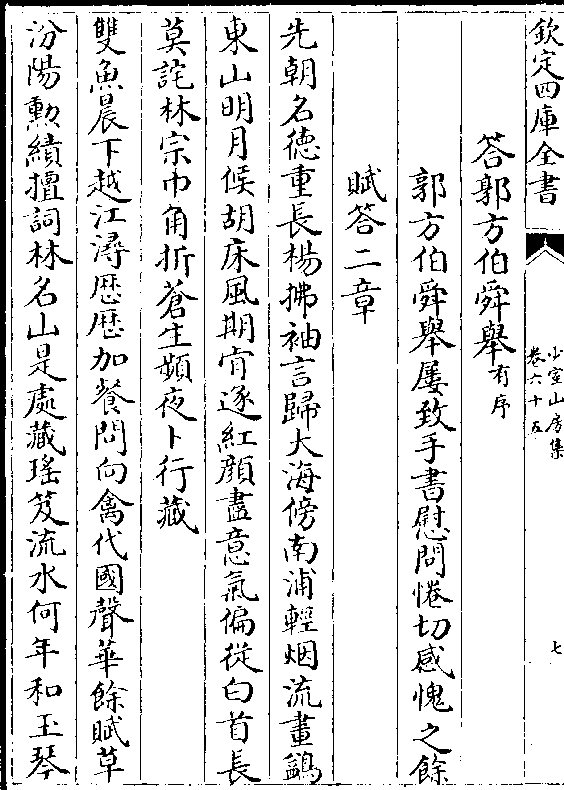 欽定四庫全書
少室山房集
卷六十五
七
答郭方伯舜舉有序
郭方伯舜舉屢致手書慰問惓切感愧之餘
賦答二章
先朝名德重長楊拂袖言歸大海傍南浦輕烟流畫鷁
東山明月候胡床風期肯逐紅顔盡意氣偏從白首長
莫詫林宗巾角折蒼生頻夜卜行藏
雙魚晨下越江潯歴歴加餐問向禽代國聲華餘賦草
汾陽勲績擅詞林名山是處藏瑤笈流水何年和玉琴